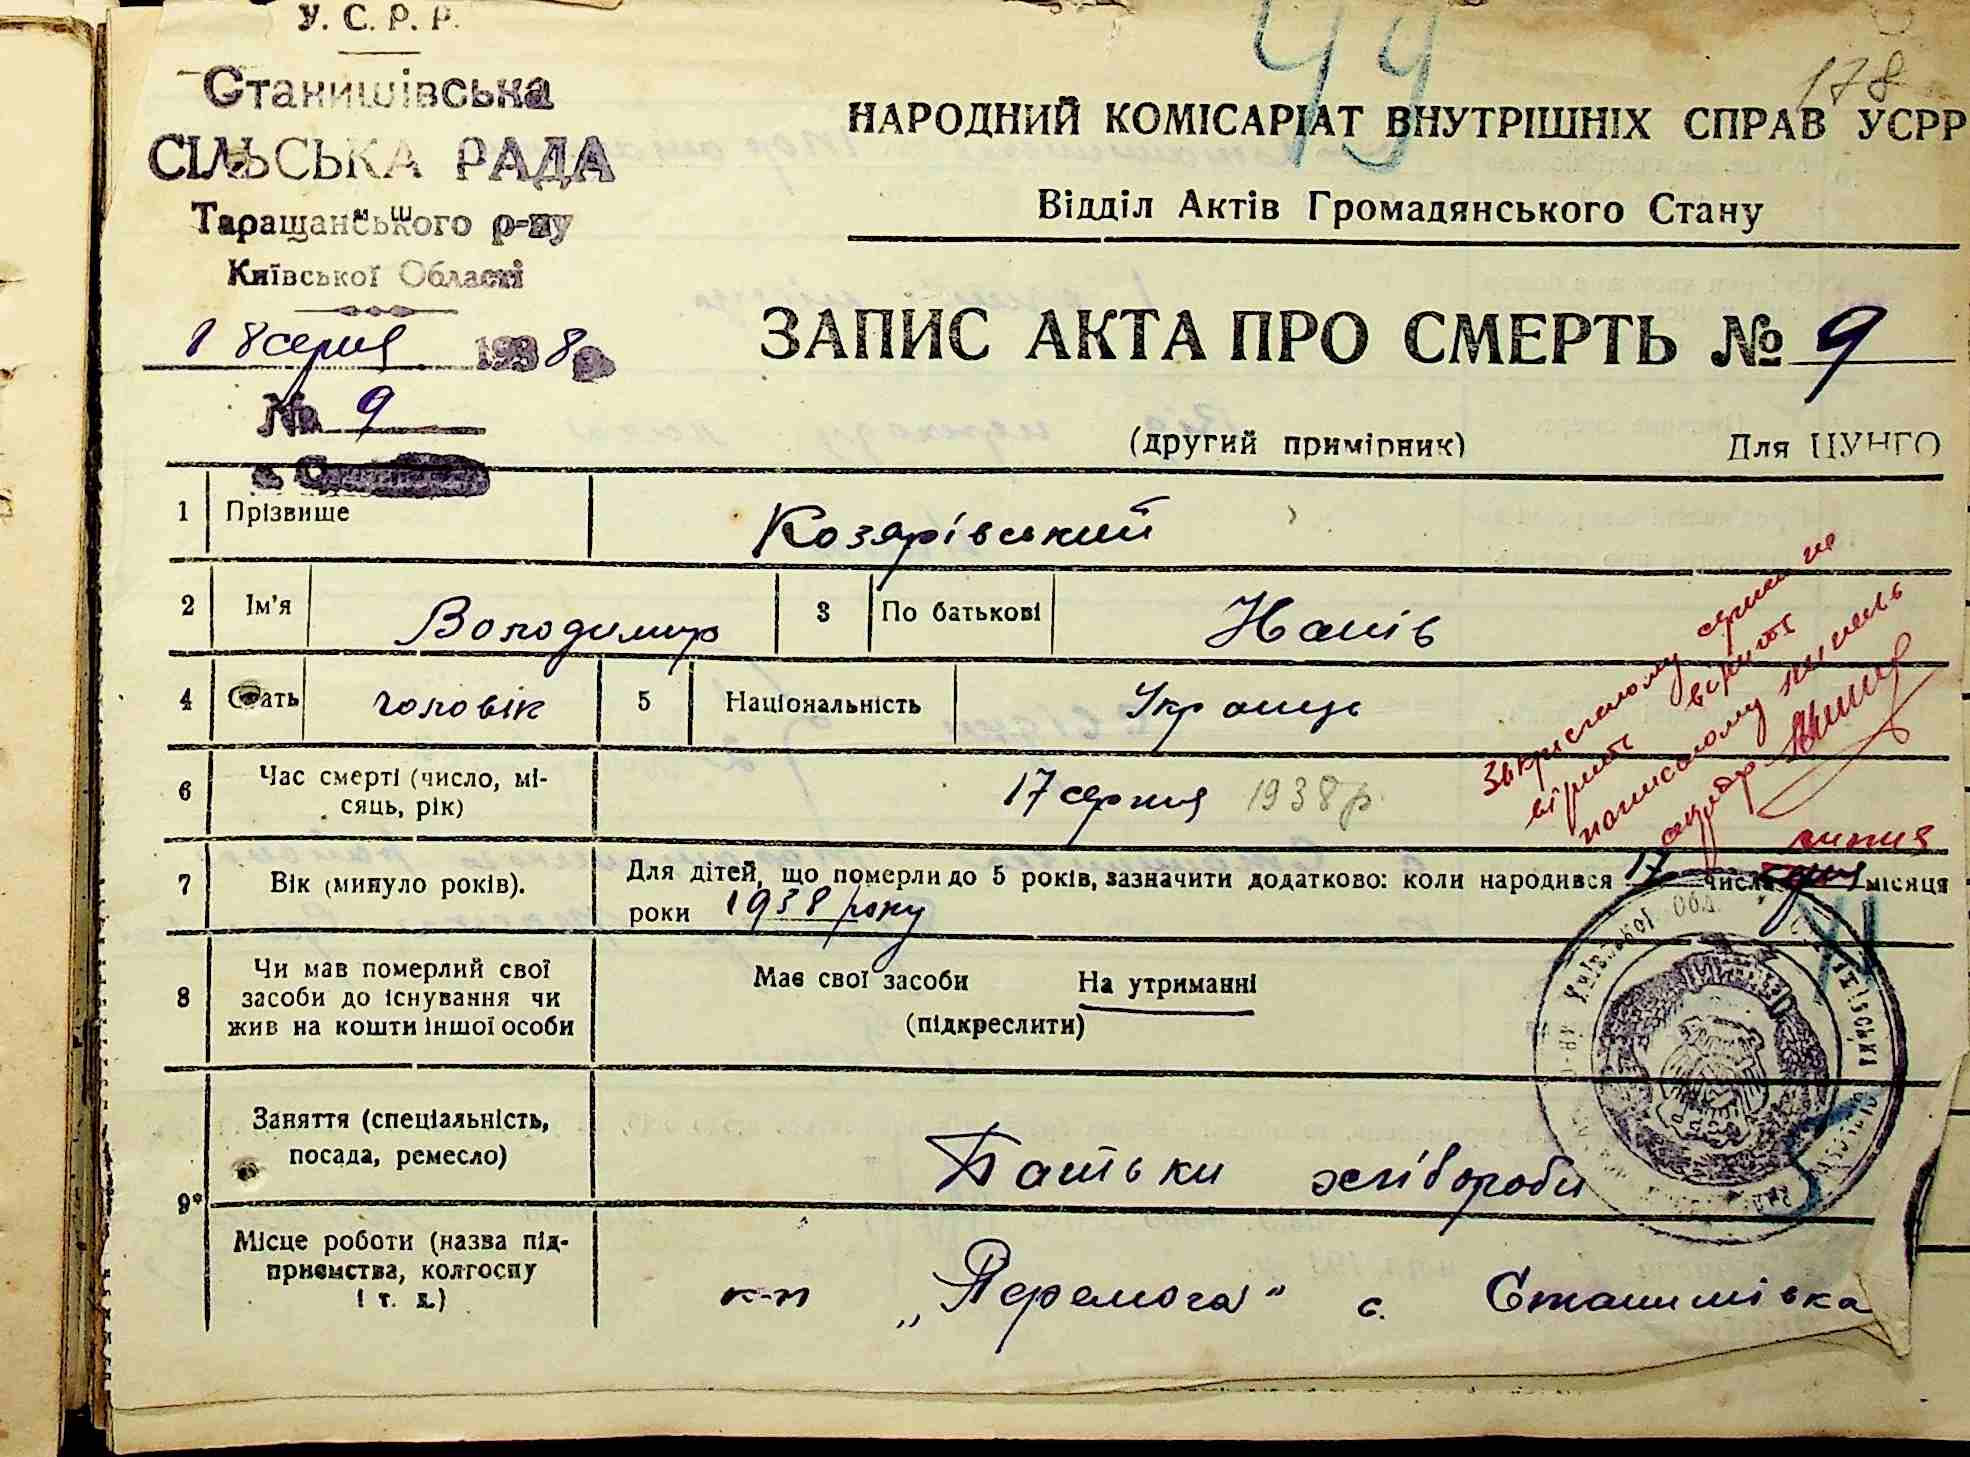 У. С. Р. Р.
Станишівська
СІЛЬСЬКА РАДА
Таращанського р-ну
Київської Області
18 серпня 1938 р.
№ 9
49
178
НАРОДНИЙ КОМІСАРІАТ ВНУТРІШНІХ СПРАВ УСРР
Відділ Актів Громадянського Стану
ЗАПИС АКТА ПРО СМЕРТЬ № 9
(другий примірник) Для ЦУНГО
1 Прізвище Козярівський
2 Ім'я Володимир 3 По батькові Нанів
4 Стать чоловік 5 Національність Українець
6 Час смерті (число, мі-
сяць, рік) 17 серпня 1938 р.
Закресленому серпня не
вірити вірити
написаному липень
7 Вік (минуло років). Для дітей, що померли до 5 років, зазначити додатково: коли народився 17 числа липня місяця
роки 1938 року
8 Чи мав померлий свої
засоби до існування чи
жив на кошти іншої особи
Має свої засоби На утриманні
(підкреслити)
9* Заняття (спеціальність,
посада, ремесло) Батьки хлібороби
Місце роботи (назва під-
приємства, колгоспу
і т. д.) к-п „Перемога" с. Станишівка